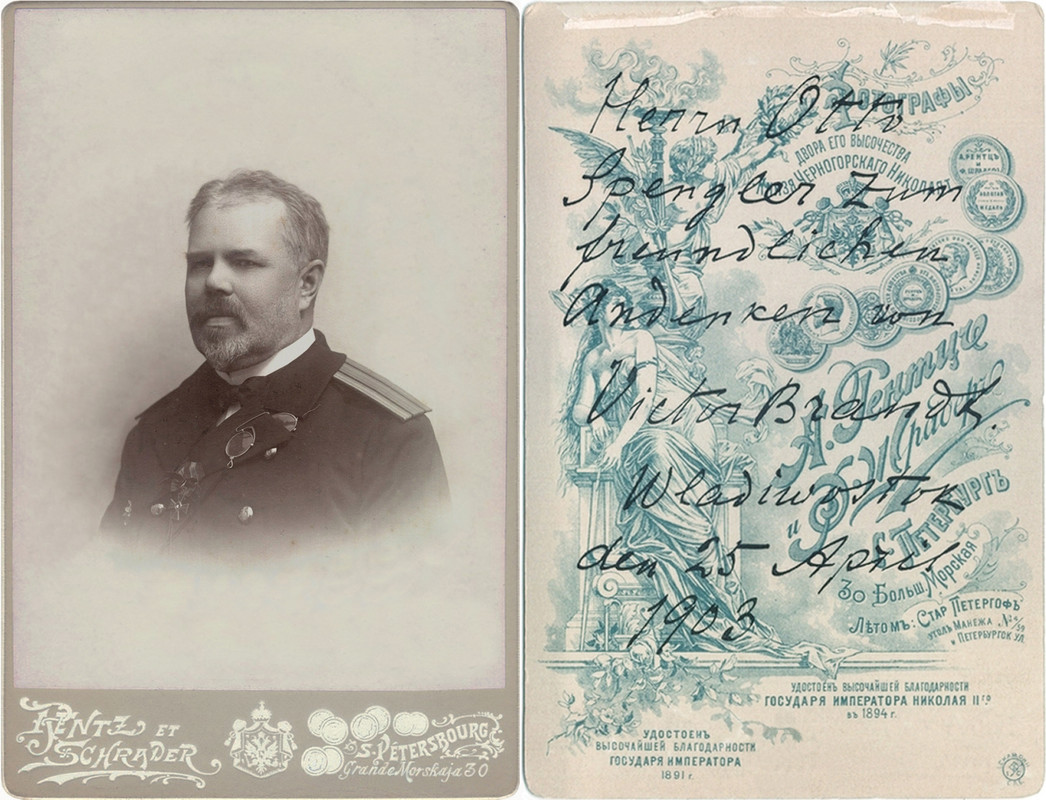 RENTZ ET
SCHRADER
S. PÉTERSBOURG
Grande Morskaja 30
Herrn Otto
Spengler zum
freundlichen
Andenken von
Victor Brandt.
Wladiwostok
den 25 April
1903
Фотографы
ДВОРА ЕГО ВЫСОЧЕСТВА
КНЯЗЯ ЧЕРНОГОРСКАГО НИКОЛАЯ
А. РЕНТЦЪ
А. Рентце
и Ф. Шрадеръ
С. ПЕТЕРБУРГЪ
30 Больш. Морская
Лѣтомъ: Стар Петергофъ
уголъ Манежа
и Петербургск ул.
УДОСТОЕНЪ ВЫСОЧАЙШЕЙ БЛАГОДАРНОСТИ
ГОСУДАРЯ ИМПЕРАТОРА НИКОЛАЯ II го
въ 1894 г.
УДОСТОЕНЪ
ВЫСОЧАЙШЕЙ БЛАГОДАРНОСТИ
ГОСУДАРЯ ИМПЕРАТОРА
1891 г.